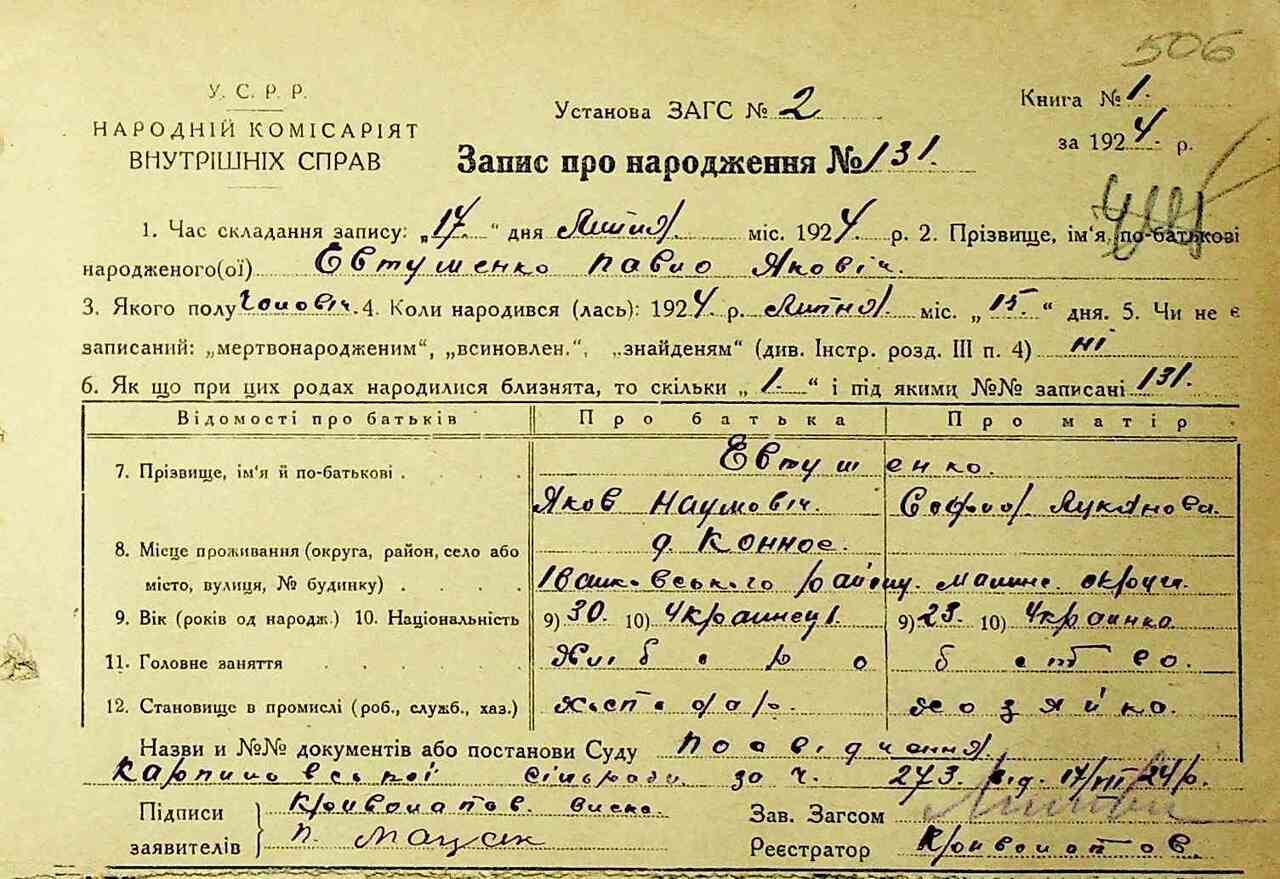 506
У. С. Р. Р.
НАРОДНІЙ КОМІСАРІЯТ
ВНУТРІШНІХ СПРАВ
Установа ЗАГС № 2
Книга № 1.
за 1924. р.
Запис про народження № 131.
1. Час складання запису: „17.“ дня Липня міс. 1924 р. 2. Прізвище, ім'я, по-батькові
народженого(ої) Евтушенко Павло Яковіч.
3. Якого полу Чоловіч. 4. Коли народився (лась): 1924. р. Липня. міс. „15.“ дня. 5. Чи не є
записаний: „мертвонародженим“, „всиновлен.“, „знайденям“ (див. Інстр. розд. III п. 4) ні
6. Як що при цих родах народилися близнята, то скільки „1.“ і під якими №№ записані 131.
Відомості про батьків Про батька Про матір
7. Прізвище, ім'я й по-батькові . . . . Евтушенко.
Яков Наумовіч. София Лукянова.
8. Місце проживання (округа, район, село або д. Конное.
місто, вулиця, № будинку) . . . . району. округи.
9. Вік (років од народж.) 10. Національність 9) 30. 10) Украинец 9) 23. 10) Украинка
11. Головне заняття . . . . Хліборобство.
12. Становище в промислі (роб., служб., хаз.) хозяйка.
Назви и №№ документів або постанови Суду Посвідчання
сільради за ч. 273. від. 17/VII 24 р.
Підписи
заявителів П. Мацак
Зав. Загсом
Реєстратор